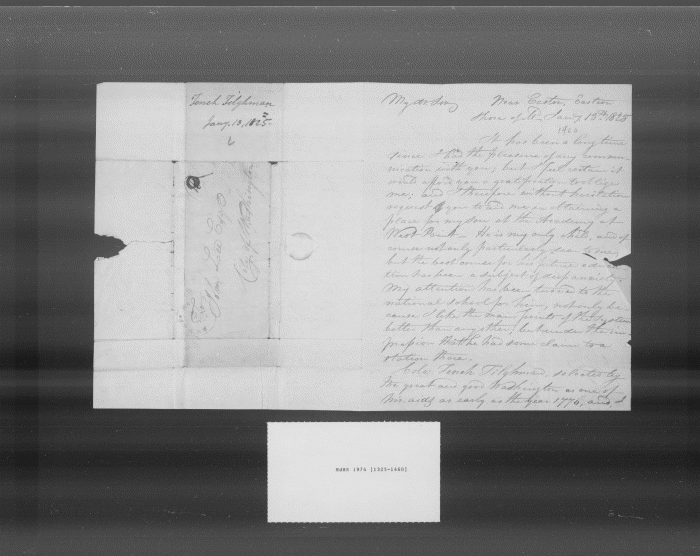 Tench Tilghman
Jany. 13, 1825
To
John Lee Esqr
City of Washington
My dr Sir,
Near Easton, Eastern
Shore of Md. Jany 13th 1825
It has been a long time
since I had the pleasure of any commu-
nication with you; but I feel certain it
would afford you a gratification to oblige
me; and I therefore without hesitation
request of you to aid me in obtaining a
place for my son at the Academy at
West Point. He is my only child, and of
course not only particularly dear to me
but the best course for his future educa-
tion has been a subject of deep anxiety.
My attention has been turned to the
national school for him, not only be-
cause I like the main points of the system
better than any other, but under the im-
pression that he had some claim to a
station there.
Colo. Tench Tilghman, selected by
the great and good Washington as one of
his aids as early as the year 1776, and, I